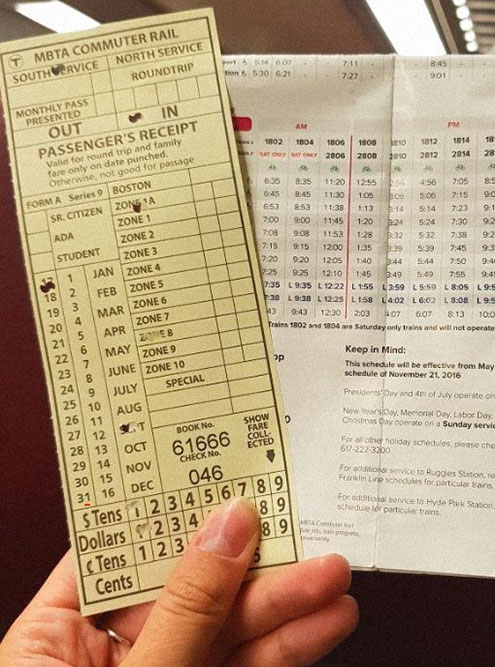 MBTA COMMUTER RAIL
SOUTH SERVICE NORTH SERVICE
ROUNDTRIP
MONTHLY PASS
PRESENTED
OUT IN
PASSENGER'S RECEIPT
Valid for round trip and family
fare only on date punched.
Otherwise, not good for passage
FORM A Series 9 BOSTON
SR. CITIZEN
ADA
STUDENT
ZONE 1A
ZONE 1
ZONE 2
ZONE 3
ZONE 4
ZONE 5
ZONE 6
ZONE 7
ZONE 8
ZONE 9
ZONE 10
SPECIAL
17 1 JAN
18 2 FEB
19 3 MAR
20 4 APR
21 5 MAY
22 6 JUNE
23 7 JULY
24 8 AUG
25 9
26 10 OCT
27 11 NOV
28 12 DEC
29 13
30 14
31 15
16
BOOK No.
61666
CHECK No.
046
SHOW
FARE
COLL-
ECTED
$ Tens 1 2 3 4 5 6 7 8 9
Dollars 2 3 4 8 9
¢ Tens 1 2 3 8 9
Cents
5:14 6:07 7:11 8:45
5:30 6:21 7:27 9:01
AM PM
1802 1804 1806 1808 1810 1812 1814
SAT ONLY SAT ONLY 2806 2808 2810 2812 2814
6:35 8:35 11:20 12:55 4:56 7:05
6:45 8:45 11:30 1:05 5:06 7:15
6:53 8:53 11:38 1:13 5:14 7:23
7:00 9:00 11:45 1:20 3:24 5:24 7:30
7:08 9:08 11:53 1:28 3:32 5:32 7:38
7:15 9:15 12:00 1:35 3:39 5:39 7:45
7:20 9:20 12:05 1:40 3:44 5:44 7:50
7:25 9:25 12:10 1:45 3:49 5:49 7:55
7:35 L 9:35 L 12:22 L 1:55 L 3:59 L 5:59 L 8:05
7:38 L 9:38 L 12:25 L 1:58 L 4:02 L 6:02 L 8:08
9:43 12:30 2:03 4:07 6:07 8:13
Trains 1802 and 1804 are Saturday only trains and will not operate
Keep in Mind:
This schedule will be effective from May
schedule of November 21, 2016
Presidents' Day and 4th of July operate on
New Year's Day, Memorial Day, Labor Day,
Christmas Day operate on a Sunday servic
For all other holiday schedules, please che
617-222-3200
For additional service to Ruggles Station, re
Franklin Line schedules for particular trains.
For additional service to Hyde Park Station,
schedule for particular trains.
MBTA Commuter Rail